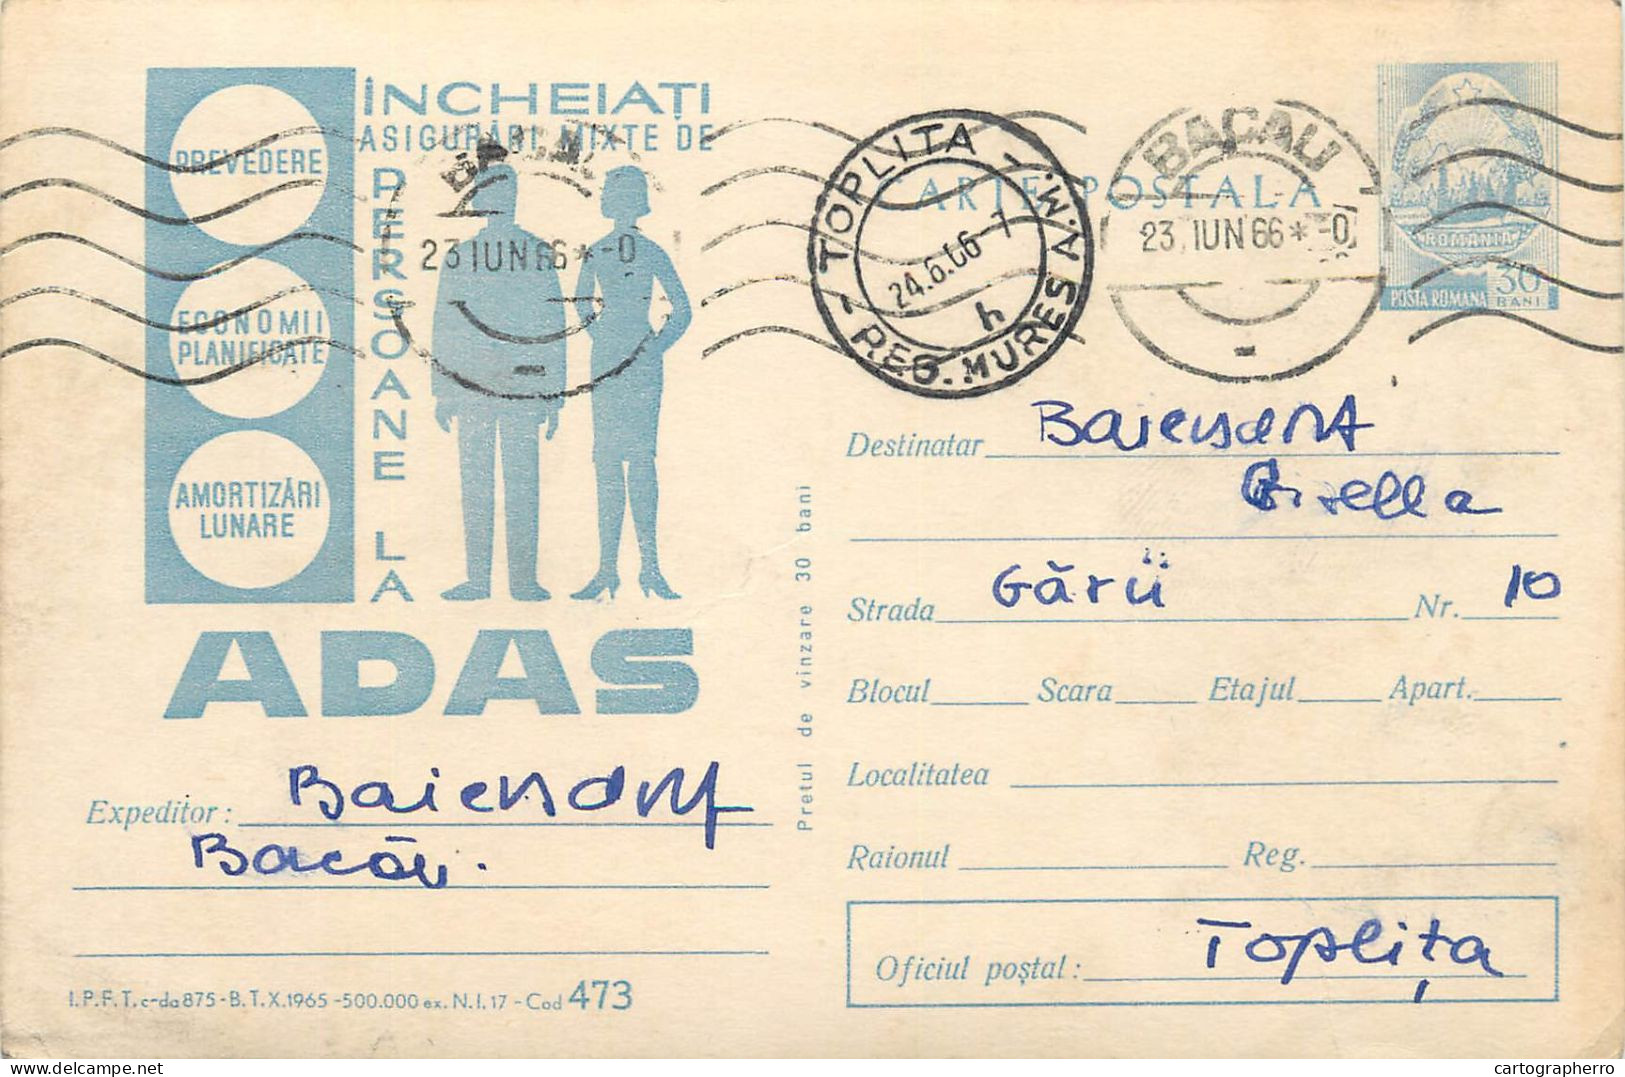 ÎNCHEIAȚI
ASIGURĂRI MIXTE DE
PERSOANE LA
ADAS
PREVEDERE
ECONOMII
PLANIFICATE
AMORTIZĂRI
LUNARE
BACAU
23 IUN 66 * -0
TOPLITA
REG. MUREȘ A.M.
24.6.66-7
h
CARTE POSTALA
BACAU
23 IUN 66 * -0
ROMANIA
POSTA ROMANA
30
BANI
Destinatar Baiersdorf
Gisella
Strada Gării Nr. 10
Blocul Scara Etajul Apart.
Localitatea
Raionul Reg.
Oficiul poștal: Toplița
Prețul de vînzare 30 bani
Expeditor: Baiersdorf
Bacău.
I.P.F.T. c-da 875-B.T.X.1965-500.000 ex. N.I. 17-Cod 473
cartographerro